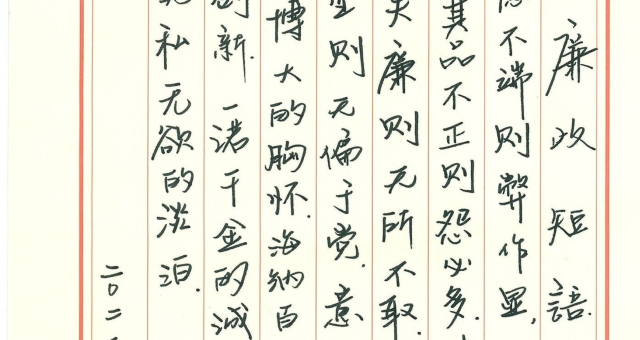 廉政短語.
不端则弊作显,
其品不正则怨必多.
夫廉则无所不取.
则无偏于党.意
博大的胸怀.海纳百
新.一诺千金的诚
私无欲的淡泊.
二〇二